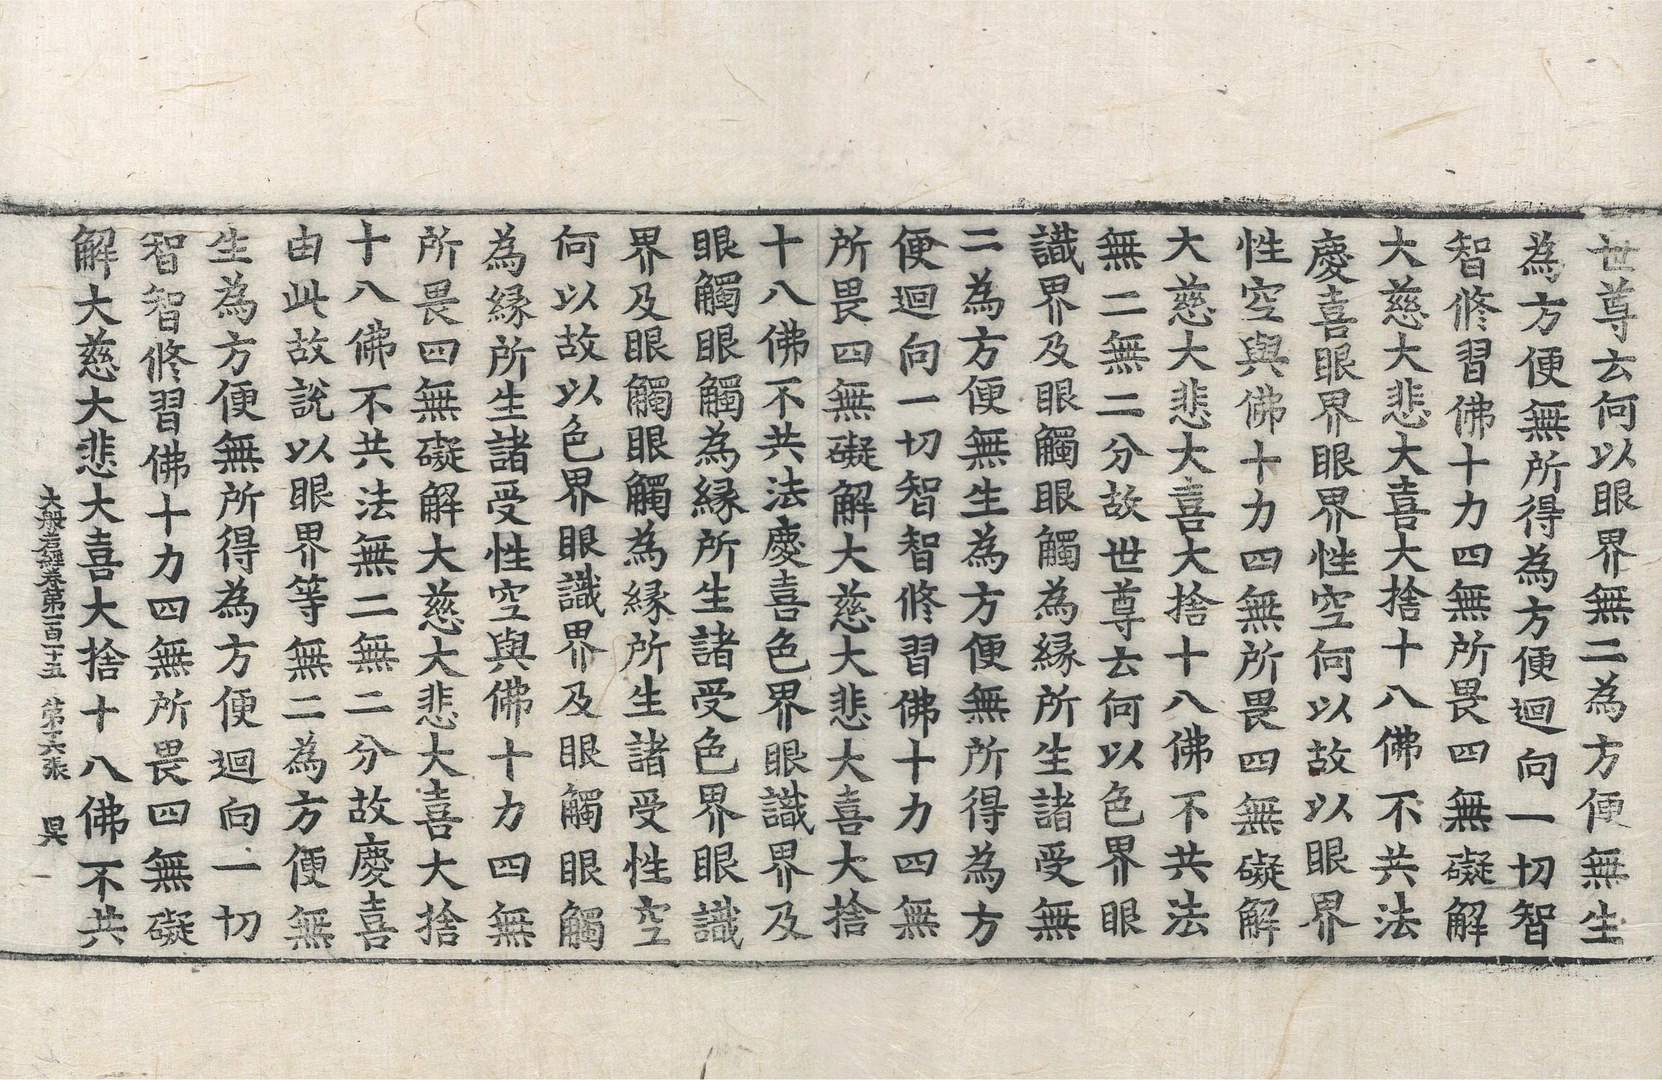 世尊云何以眼界無二為方便無生
為方便無所得為方便迴向一切智
智修習佛十力四無所畏四無礙解
大慈大悲大喜大捨十八佛不共法
慶喜眼界眼界性空何以故以眼界
性空與佛十力四無所畏四無礙解
大慈大悲大喜大捨十八佛不共法
無二無二分故世尊云何以色界眼
識界及眼觸眼觸為緣所生諸受無
二為方便無生為方便無所得為方
便迴向一切智智修習佛十力四無
所畏四無礙解大慈大悲大喜大捨
十八佛不共法慶喜色界眼識界及
眼觸眼觸為緣所生諸受色界眼識
界及眼觸眼觸為緣所生諸受性空
何以故以色界眼識界及眼觸眼觸
為緣所生諸受性空與佛十力四無
所畏四無礙解大慈大悲大喜大捨
十八佛不共法無二無二分故慶喜
由此故說以眼界等無二為方便無
生為方便無所得為方便迴向一切
智智修習佛十力四無所畏四無礙
解大慈大悲大喜大捨十八佛不共
大般若經卷第一百一十五 第六張 昃